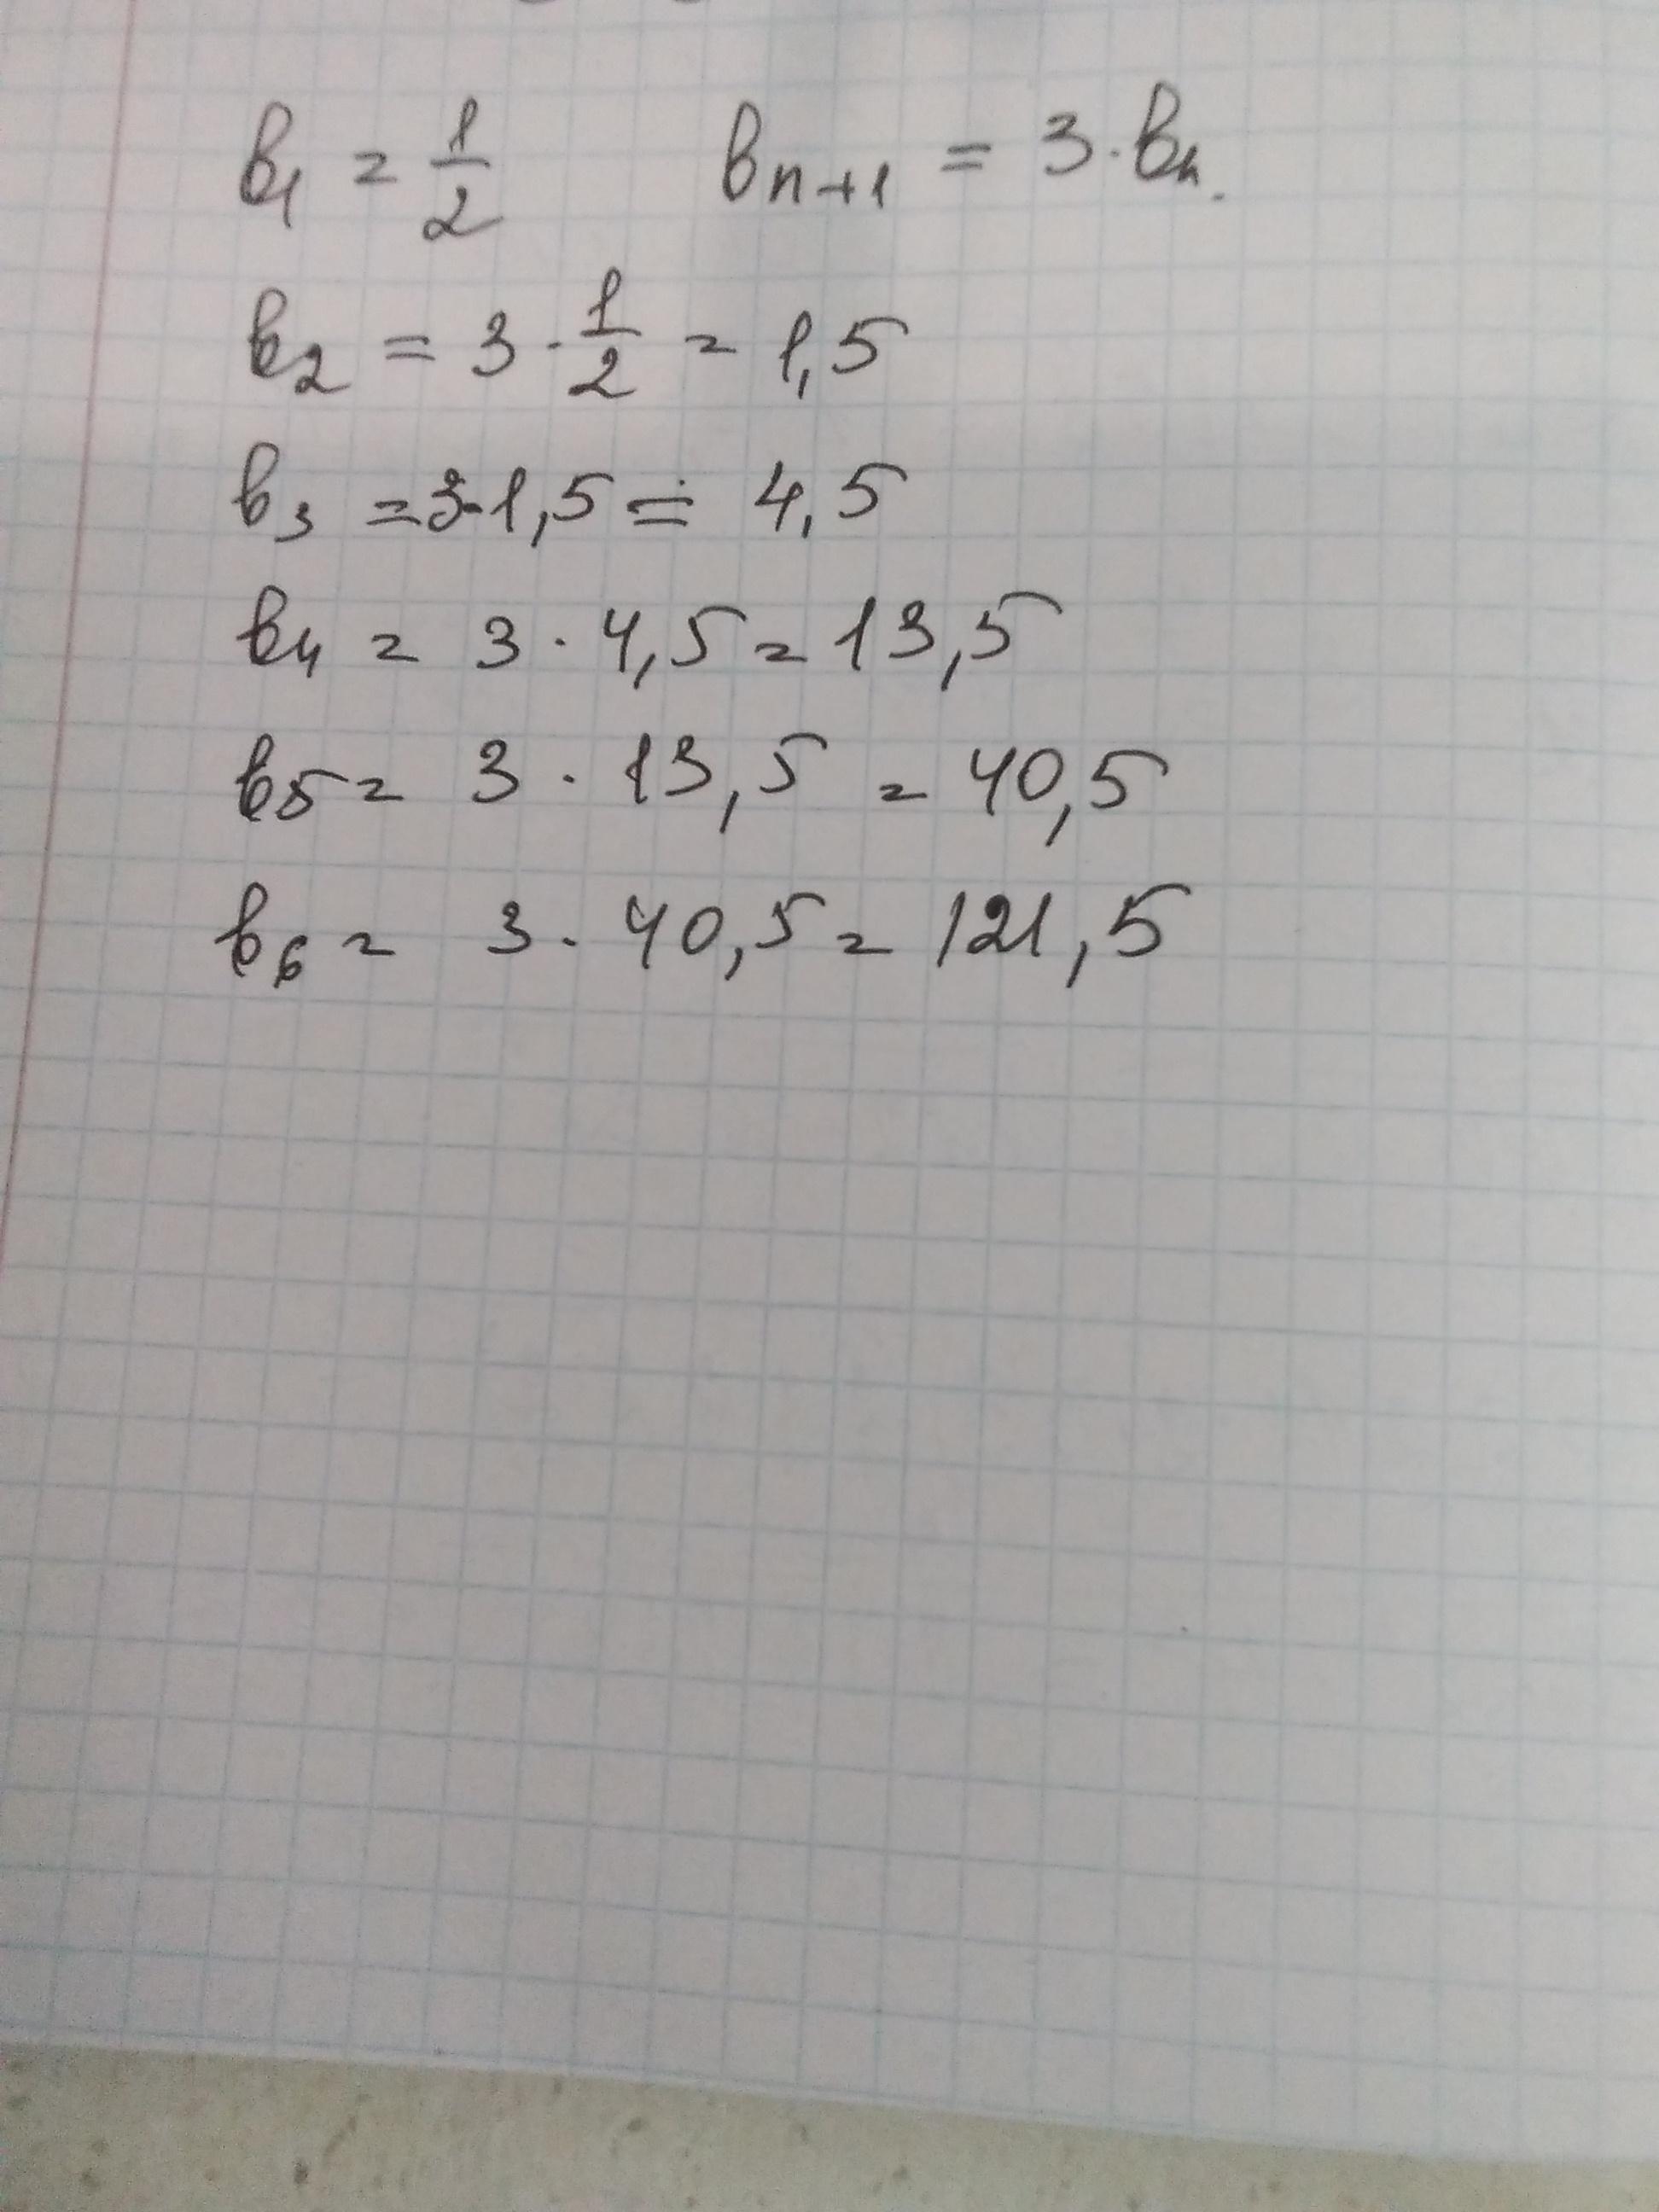 b₁ = 1/2 bₙ₊₁ = 3·bₙ.
b₂ = 3·1/2 = 1,5
b₃ = 3·1,5 = 4,5
b₄ = 3·4,5 = 13,5
b₅ = 3·13,5 = 40,5
b₆ = 3·40,5 = 121,5